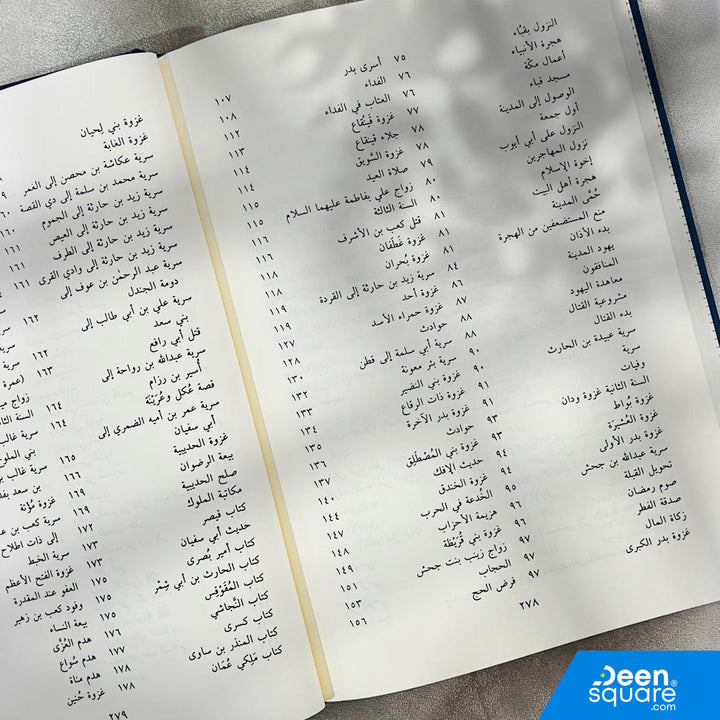 النزول بقُباء
هجرة الأنبياء
أعمال مكّة
مسجد قباء
الوصول إلى المدينة
أول جمعة
النزول على أبي أيوب
نزول المهاجرين
إخوة الإسلام
هجرة أهل البيت
حُمَّى المدينة
منع المستضعفين من الهجرة
بدء الأذان
يهود المدينة
المنافقون
معاهدة اليهود
مشروعية القتال
بدء القتال
سرية عبيدة بن الحارث
سرية
وفيات
السنة الثانية غزوة ودان
غزوة بُواط
غزوة العُشيرَة
غزوة بدر الأولى
سرية عبدالله بن جحش
تحويل القبلة
صوم رمضان
صدقة الفطر
زكاة المال
غزوة بدر الكبرى
٧٥
٧٦
٧٦
٧٧
٧٨
٧٨
٧٩
٨٠
٨٠
٨١
٨١
٨٤
٨٦
٨٧
٨٨
٩٠
٩٠
٩١
٩١
٩٣
٩٤
٩٤
٩٥
٩٦
٩٦
٩٧
٩٧
أسرى بدر
الفداء
العتاب في الفداء
غزوة قَيْنُقاع
جلاء قينقاع
غزوة السَّويق
صلاة العيد
زواج علي بفاطمة عليهما السلام
السنة الثالثة
قتل كعب بن الأشرف
غزوة غَطَفان
غزوة بُحران
سرية زيد بن حارثة إلى القردة
غزوة أحد
غزوة حمراء الأسد
حوادث
سرية أبي سلمة إلى قطن
سرية بئر معونة
غزوة بني النضير
غزوة ذات الرقاع
غزوة بدر الآخرة
حوادث
غزوة بني المُصْطَلِق
حديث الإفك
غزوة الخندق
الخُدعة في الحرب
هزيمة الأحزاب
غزوة بني قُرَيْظَة
زواج زينب بنت جحش
الحجاب
فرض الحج
١٠٧
١٠٨
١١٢
١١٣
١١٤
١١٤
١١٥
١١٥
١١٦
١١٦
١١٨
١١٨
١١٩
١١٩
١٢٧
١٢٨
١٣٠
١٣٢
١٣٣
١٣٤
١٣٥
١٣٦
١٣٧
١٤٠
١٤٤
١٤٧
١٤٨
١٤٩
١٥١
١٥٣
١٥٦
٢٧٨
غزوة بني لِحيان
غزوة الغابة
سرية عكاشة بن محصن إلى الغمر
سرية محمد بن سلمة إلى ذي القصة ١٦٠
سرية زيد بن حارثة إلى الجموم ١٦٠
سرية زيد بن حارثة إلى العيص ١٦١
سرية زيد بن حارثة إلى الطرف ١٦١
سرية زيد بن حارثة إلى وادي القرى ١٦١
سرية عبد الرحمٰن بن عوف إلى
دومة الجندل ١٦٢
سرية علي بن أبي طالب إلى
بني سعد ١٦٢
قتل أبي رافع ١٦٣
سرية عبدالله بن رواحة إلى
أُسير بن رزام ١٦٤
قصة عُكل وعُرَيْنَة ١٦٤
سرية عمر بن أميه الضمري إلى
أبي سفيان ١٦٥
غزوة الحديبية ١٦٦
بيعة الرضوان ١٦٩
صلح الحديبية ١٦٩
مكاتبة الملوك ١٧٢
كتاب قيصر ١٧٣
حديث أبي سفيان ١٧٣
كتاب أمير بُصرى ١٧٥
كتاب الحارث بن أبي شِمْر ١٧٥
كتاب المُقَوْقِس ١٧٥
كتاب النَّجاشي ١٧٦
كتاب كسرى ١٧٧
كتاب المنذر بن ساوى ١٧٨
كتاب مَلِكَي عُمَان ١٧٨
السنة
سرية غالب
بني الملوح
سرية غالب
بن سعد
غزوة مُؤْتة
سرية كعب بن
إلى ذات اطلاح
سرية الخبط
غزوة الفتح الأعظم
العفو عند المقدرة
وفود كعب بن زهير
بيعة النساء
هدم العُزَّى
هدم سُواع
هدم مناة
غزوة حُنَين
٢٧٩
Deen
square®
.com